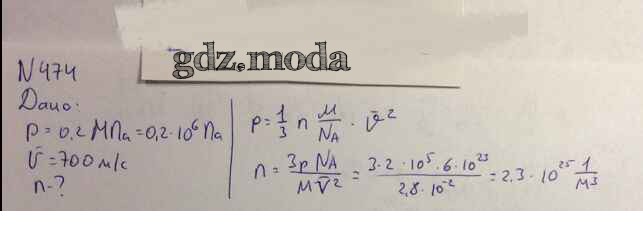 gdz.moda
N 474
Дано:
p = 0,2 МПа = 0,2·10⁶ Па
v̄ = 700 м/с
n - ?
p = 1/3 n M/N_A · v̄²
n = 3p N_A / M v̄² = 3·2·10⁵·6·10²³ / 2,8·10⁻² = 2,3·10²⁵ 1/м³